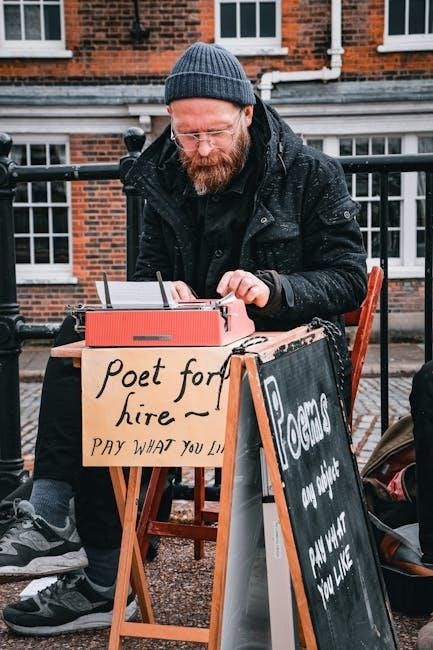 Poet for
hire ~
PAY WHAT YOU LI
Poems
any subject
PAY WHAT
YOU LIKE